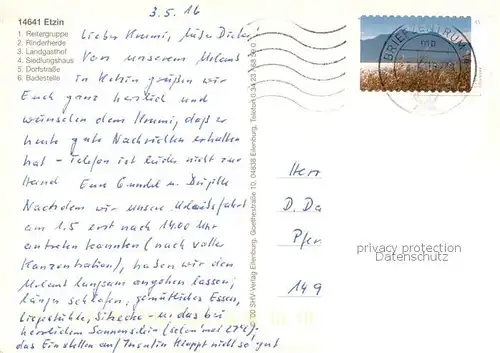 14641 Etzin
1. Reitergruppe
2. Rinderherde
3. Landgasthof
4. Siedlungshaus
5. Dorfstraße
6. Badestelle
3.5.16
Lieber Krumi, lieber Dieter!
Von unserem Urlaub
in Ketzin grüßen wir
Euch ganz herzlich und
wünschen dem Krumi, daß er
heute gute Nachrichten erhalten
hat - Telefon ist leider nicht zur
Hand Eure Gundel u. Brigitte
Nachdem wir unsere Urlaubsfahrt
am 1.5 erst nach 14.00 Uhr
antreten konnten (nach voller
Konzentration), haben wir den
Urlaub langsam angehen lassen;
lange schlafen, gemütliches Essen,
Liegestühle, Sitzecke - u. das bei
herrlichem Sonnenschein
das Einstellen auf klappt nicht so gut
SHV-Verlag Eilenburg, Goethestraße 10, 04838 Eilenburg, Telefon
BRIEFZENTRUM
Herr
D. Da
Pfer
149
privacy protection
Datenschutz